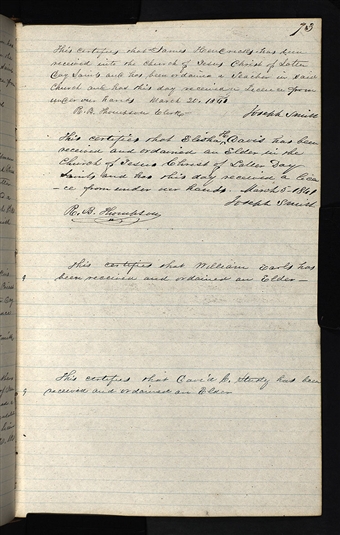 73
This certifies that James Hendricks has been
received into the Church of Jesus Christ of Latter
Day Saints and has been ordained a Teacher in said
Church and has this day received a License from
under our hands March 20. 1841
R. B. Thompson Clerk Joseph Smith
This certifies that Elisha H. Davis has been
received and ordained an Elder in the
Church of Jesus Christ of Latter Day
Saints and has this day received a Licen
-ce from under our hands. March 5. 1841
Joseph Smith
R. B. Thompson
This certifies that William Earls has
been received and ordained an Elder—
This certifies that David H. Study has been
received and ordained an Elder